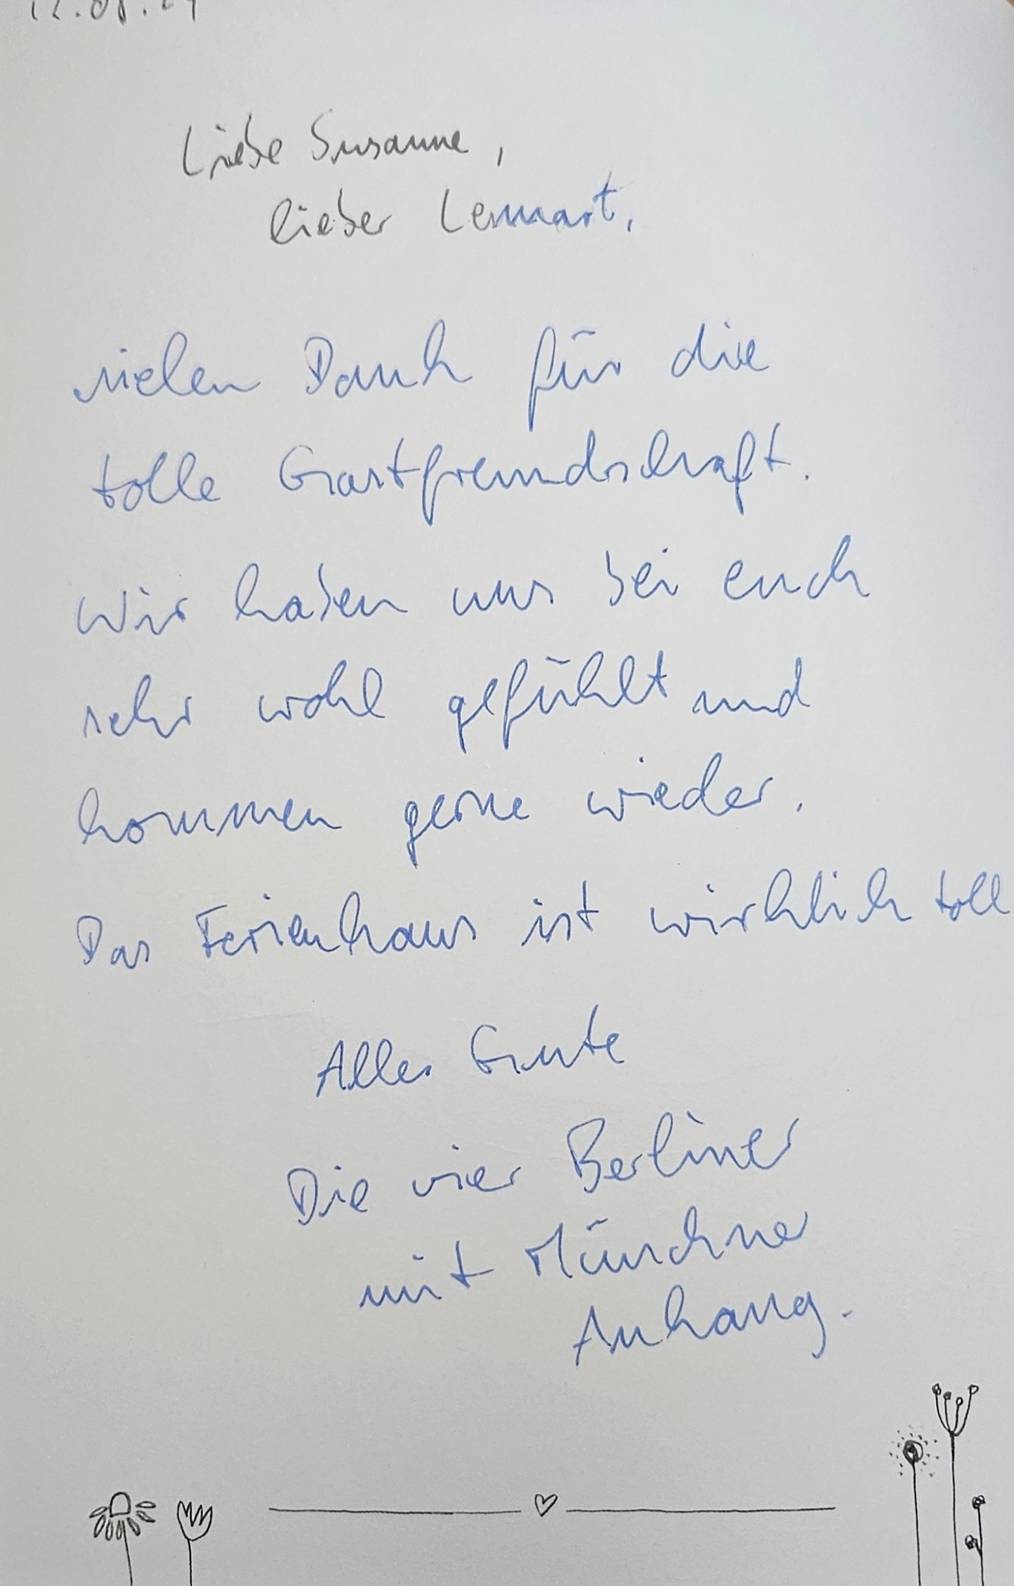 Liebe Susanne,
lieber Lennart,
vielen Dank für die
tolle Gastfreundschaft.
Wir haben uns bei euch
sehr wohl gefühlt und
kommen gerne wieder.
Das Ferienhaus ist wirklich toll
Alles Gute
Die vier Berliner
mit Münchner
Anhang.